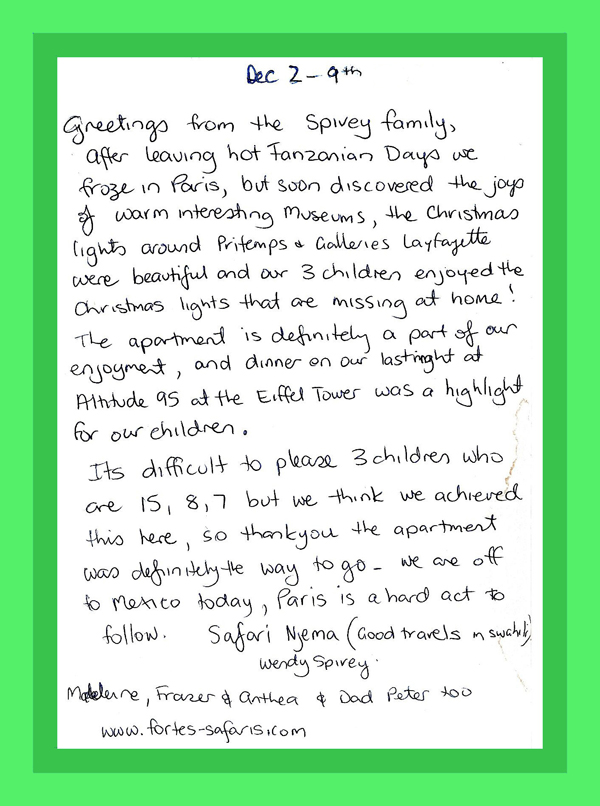 Dec 2 - 9th
Greetings from the Spivey family,
After leaving hot Tanzanian Days we
froze in Paris, but soon discovered the joys
of warm interesting Museums, the Christmas
lights around Pritemps & Galleries Layfayette
were beautiful and our 3 children enjoyed the
Christmas lights that are missing at home!
The apartment is definitely a part of our
enjoyment, and dinner on our last night at
Altitude 95 at the Eiffel Tower was a highlight
for our children.
Its difficult to please 3 children who
are 15, 8, 7 but we think we achieved
this here, so thankyou the apartment
was definitely the way to go - we are off
to Mexico today, Paris is a hard act to
follow. Safari Njema (Good travels in swahili)
Wendy Spivey.
Madeleine, Frazer & Anthea & Dad Peter too
www.fortes-safaris.com